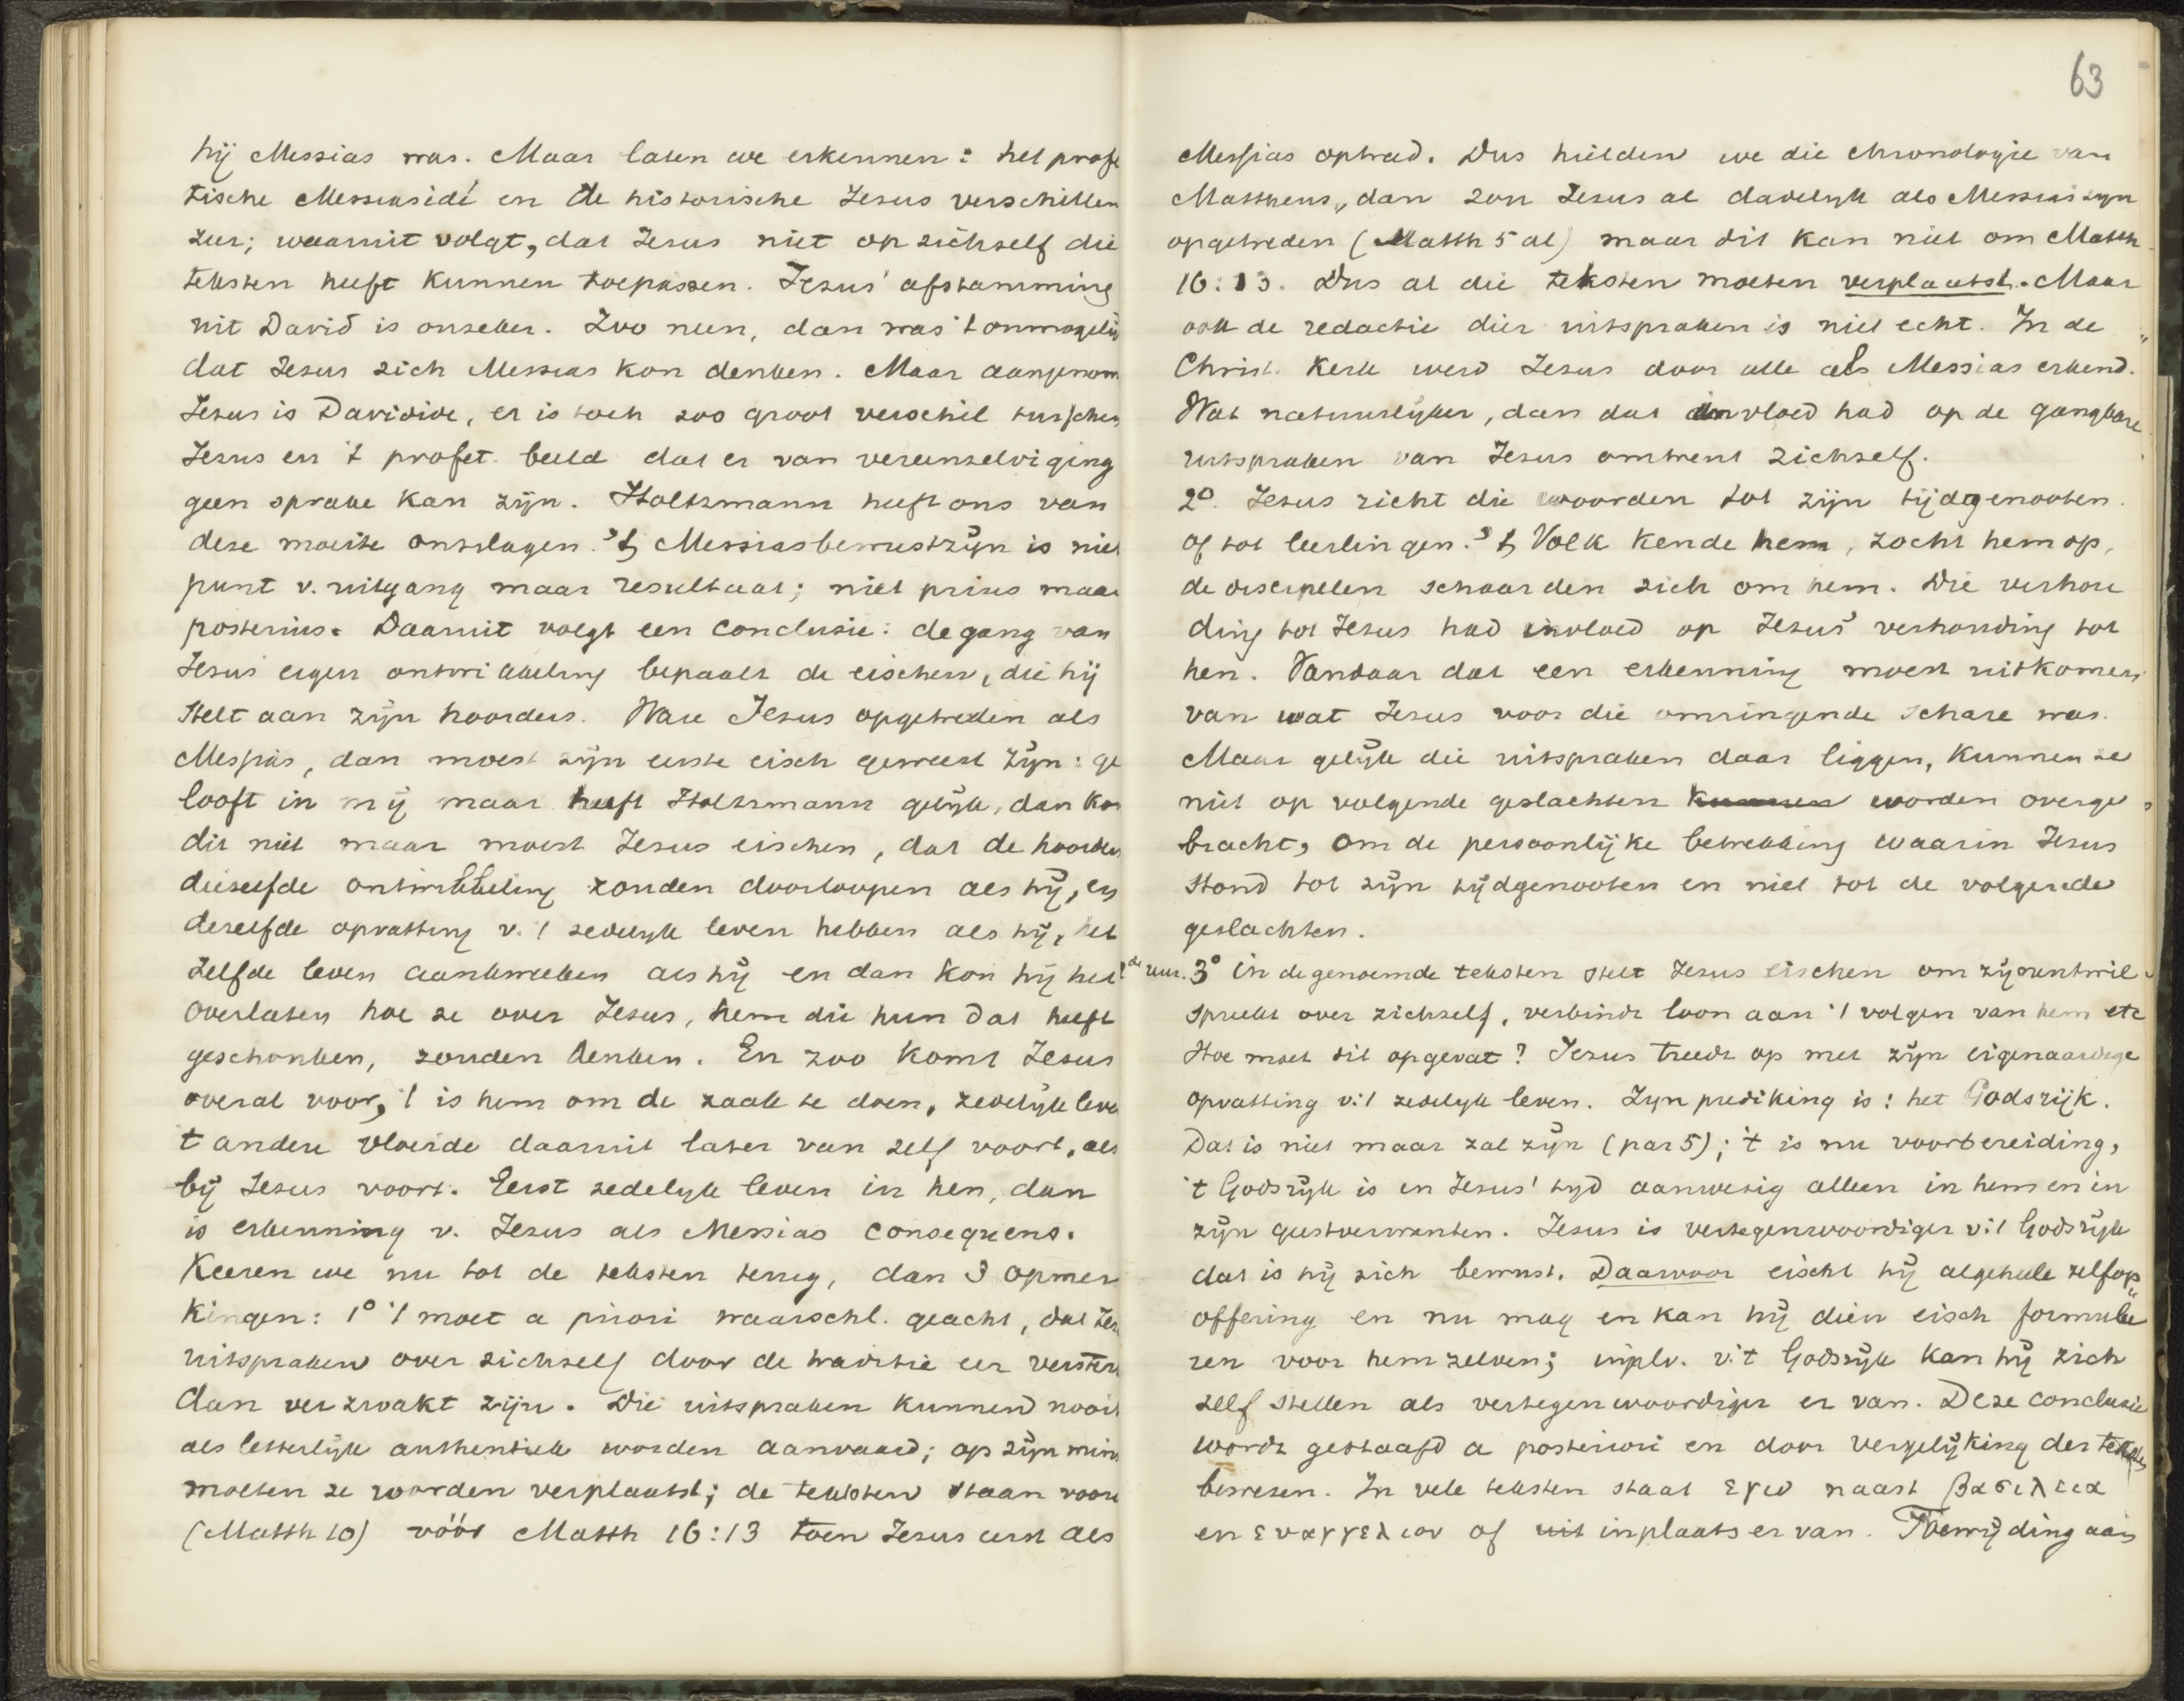 hij Messias was. Maar laten we erkennen: het profe
tische Messiasidé en de historische Jezus verschillen
zeer; waaruit volgt, dat Jezus niet op zichzelf die
teksten heeft kunnen toepassen. Jezus' afstamming
uit David is onzeker. Zoo neen, dan was 't onmogelij
dat Jezus zich Messias kon denken. Maar aangenom
Jezus is Davidide, er is toch zoo groot verschil tusschen
Jezus en 't profet. beeld dat er van vereenzelviging
geen sprake kan zijn. Holtzmann heeft ons van
deze moeite ontslagen. 't Messiasbewustzijn is niet
punt v. uitgang maar resultaat; niet prius maar
posterius. Daaruit volgt een conclusie: de gang van
Jezus' eigen ontwikkeling bepaalt de eischen, die hij
stelt aan zijn hoorders. Ware Jezus opgetreden als
Messias, dan moest zijn eerste eisch geweest zijn: ge
looft in mij maar heeft Holtzmann gelijk, dan kon
dit niet maar moest Jezus eischen, dat de hoorders
diezelfde ontwikkeling zouden doorloopen als hij, en
dezelfde opvatting v. 't zedelijk leven hebben als hij, het
zelfde leven aankweeken als hij en dan kon hij het
overlaten hoe ze over Jezus, hem die hun dat heeft
geschonken, zouden denken. En zoo komt Jezus
overal voor, 't is hem om de zaak te doen, zedelijk leve
t andere vloeide daaruit later van zelf voort, als
bij Jezus voort. Eerst zedelijk leven in hen, dan
is erkenning v. Jezus als Messias consequens.
Keeren we nu tot de teksten terug, dan 3 opmer
kingen: 1° 't moet a priori waarschl. geacht, dat Jez
uitspraken over zichzelf door de traditie eer verster
dan verzwakt zijn. Die uitspraken kunnen nooit
als letterlijk authentiek worden aanvaard; op zijn mins
moeten ze worden verplaatst; de teksten staan voor
(Matth 10) vóór Matth 16:13 toen Jezus eerst als
63
Messias optrad. Dus hielden we die chronologie van
Mattheus, dan zou Jezus al dadelijk als Messias zijn
opgetreden (Matth 5 al) maar dit kan niet om Matth
16:13. Dus al die teksten moeten verplaatst. Maar
ook de redactie dier uitspraken is niet echt. In de
Christ. Kerk werd Jezus door alle als Messias erkend.
Wat natuurlijker, dan dat invloed had op de gangbare
uitspraken van Jezus omtrent zichzelf.
2°. Jezus richt die woorden tot zijn tijdgenooten
of tot leerlingen. 't Volk kende hem, zocht hem op,
de discipelen schaarden zich om hem. Die verhou
ding tot Jezus had invloed op Jezus' verhouding tot
hen. Vandaar dat een erkenning moest uitkomen
van wat Jezus voor die omringende schare was.
Maar gelijk die uitspraken daar liggen, kunnen ze
niet op volgende geslachten kunnen worden overge
bracht, om de persoonlijke betrekking waarin Jezus
stond tot zijn tijdgenooten en niet tot de volgende
geslachten.
3° in de genoemde teksten stelt Jezus eischen om zijnentwil
spreekt over zichzelf, verbindt loon aan 't volgen van hem etc
Hoe moet dit opgevat? Jezus treedt op met zijn eigenaardige
opvatting v. 't zedelijk leven. Zijn prediking is: het Godsrijk.
Dat is niet maar zal zijn (par 5); 't is nu voorbereiding,
't Godsrijk is in Jezus' tijd aanwezig alleen in hem en in
zijn geestverwanten. Jezus is vertegenwoordiger v. 't Godsrijk
dat is hij zich bewust. Daarvoor eischt hij algeheele zelfop
offering en nu mag en kan hij dien eisch formulee
ren voor hem zelven; inplv. v. 't Godsrijk kan hij zich
zelf stellen als vertegenwoordiger er van. Deze conclusie
wordt gestaafd a posteriori en door vergelijking der teksten
bewezen. In vele teksten staat εγω naast βασιλεια
en ευαγγελιον of uit inplaats er van. Toewijding aan